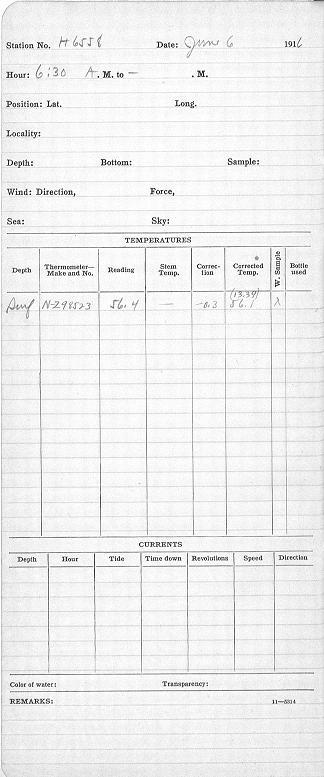 Station No. H6558 Date: June 6 1916
Hour: 6:30 A. M. to — . M.
Position: Lat. Long.
Locality:
Depth: Bottom: Sample:
Wind: Direction, Force,
Sea: Sky:
TEMPERATURES
Depth Thermometer—Make and No. Reading Stem Temp. Correction Corrected Temp. W. Sample Bottle used
(13.39)
Surf N-Z98523 56.4 — -0.3 56.1
CURRENTS
Depth Hour Tide Time down Revolutions Speed Direction
Color of water: Transparency:
REMARKS: 11—5314